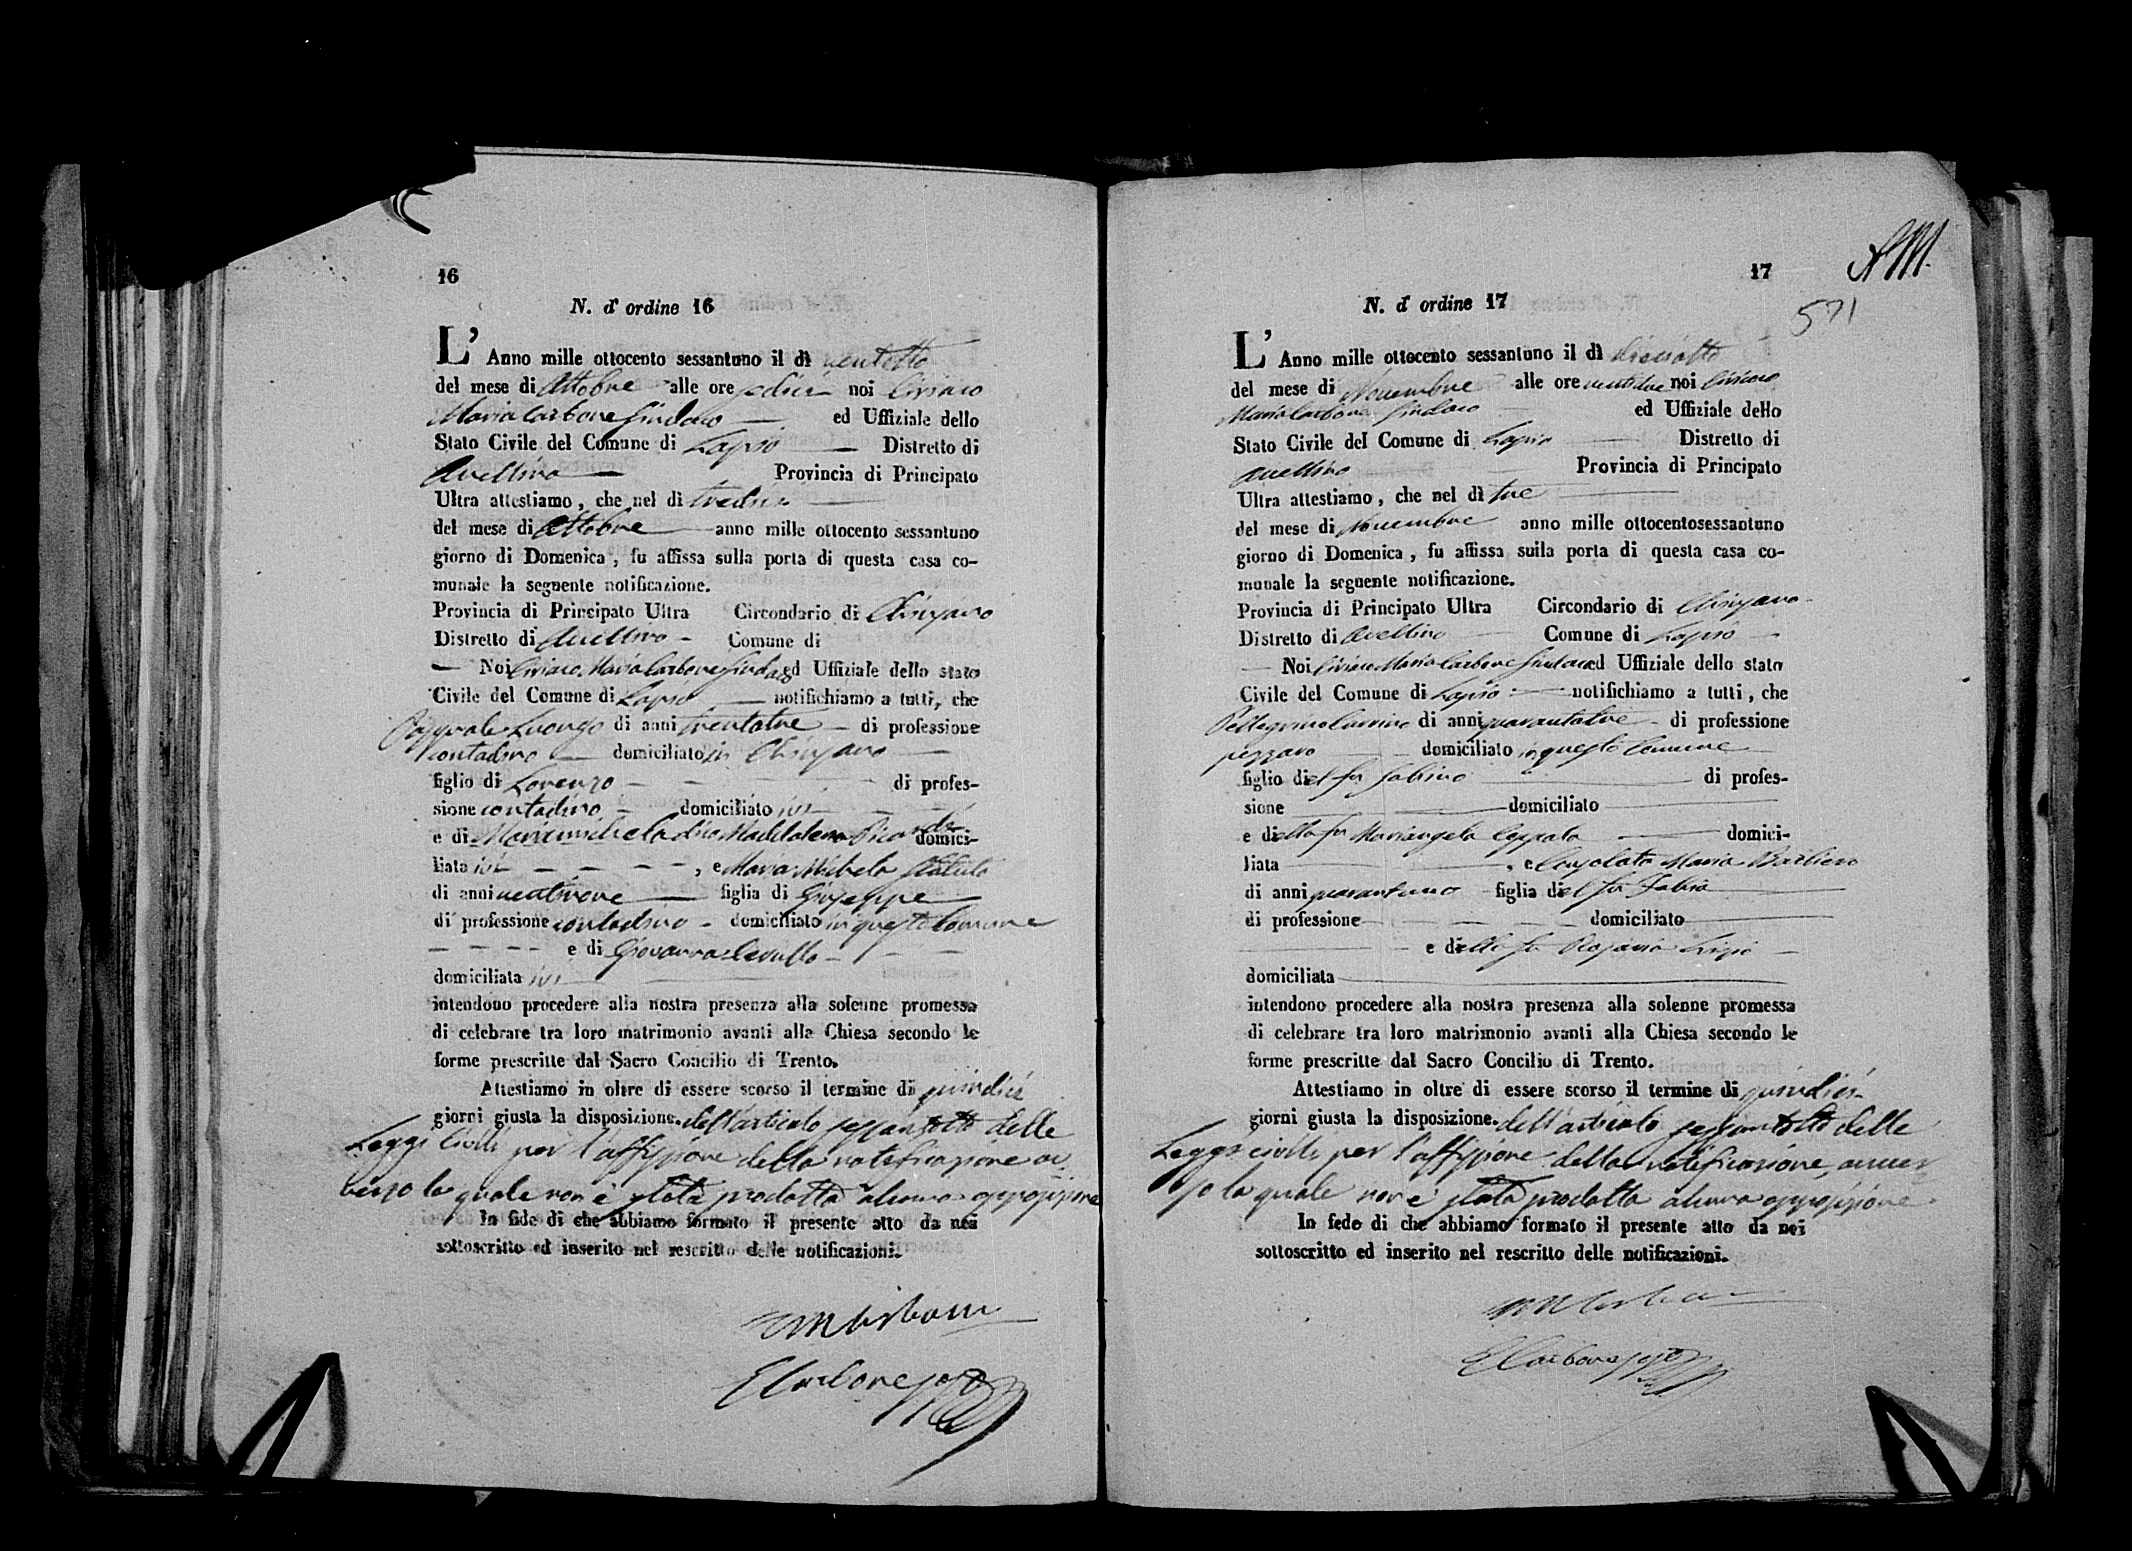 16
N. d' ordine 16
L' Anno mille ottocento sessantuno il dì ventotto
del mese di Ottobre alle ore sedici noi Ciriaco
Maria Carbone Sindaco ed Uffiziale dello
Stato Civile del Comune di Lapio Distretto di
Avellino Provincia di Principato
Ultra attestiamo, che nel dì tredici
del mese di Ottobre anno mille ottocento sessantuno
giorno di Domenica, fu affissa sulla porta di questa casa co-
munale la seguente notificazione.
Provincia di Principato Ultra Circondario di Chiusano
Distretto di Avellino Comune di
Noi Ciriaco Maria Carbone Sindaco ed Uffiziale dello stato
Civile del Comune di Lapio notifichiamo a tutti, che
Pasquale Luongo di anni trentatre di professione
contadino domiciliato in Chiusano
figlio di Lorenzo di profes-
sione contadino domiciliato ivi
e di Maddalena domici-
liata ivi , e Maria Michela
di anni ventinove figlia di Giuseppe
di professione contadino domiciliato in questo Comune
e di Giovanna
domiciliata ivi
intendono procedere alla nostra presenza alla solenne promessa
di celebrare tra loro matrimonio avanti alla Chiesa secondo le
forme prescritte dal Sacro Concilio di Trento.
Attestiamo in oltre di essere scorso il termine di quindici
giorni giusta la disposizione. dell'articolo sessantotto delle
Leggi Civili per l'affissione della notificazione av
verso la quale non è stata prodotta alcuna opposizione
In fide di che abbiamo formato il presente atto da noi
sottoscritto ed inserito nel rescritto delle notificazioni.
CM Carbone
E Carbone
17
AM.
571
N. d' ordine 17
L' Anno mille ottocento sessantuno il dì dieciotto
del mese di Novembre alle ore ventidue noi Ciriaco
Maria Carbone Sindaco ed Uffiziale dello
Stato Civile del Comune di Lapio Distretto di
Avellino Provincia di Principato
Ultra attestiamo, che nel dì tre
del mese di Novembre anno mille ottocentosessantuno
giorno di Domenica, fu affissa sulla porta di questa casa co-
munale la seguente notificazione.
Provincia di Principato Ultra Circondario di Chiusano
Distretto di Avellino Comune di Lapio
Noi Ciriaco Maria Carbone Sindaco ed Uffiziale dello stato
Civile del Comune di Lapio notifichiamo a tutti, che
Pellegrino di anni quarantatre di professione
domiciliato in questo Comune
figlio del fu Sabino di profes-
sione domiciliato
e della fu Mariangela domici-
liata , e Consolata Maria Barbiero
di anni quarantuno figlia del fu Fabio
di professione domiciliato
e della fu Rosaria
domiciliata
intendono procedere alla nostra presenza alla solenne promessa
di celebrare tra loro matrimonio avanti alla Chiesa secondo le
forme prescritte dal Sacro Concilio di Trento.
Attestiamo in oltre di essere scorso il termine di quindici
giorni giusta la disposizione. dell'articolo sessantotto delle
Leggi civili per l'affissione della notificazione, avver
so la quale non è stata prodotta alcuna opposizione.
In fede di che abbiamo formato il presente atto da noi
sottoscritto ed inserito nel rescritto delle notificazioni.
E Carbone